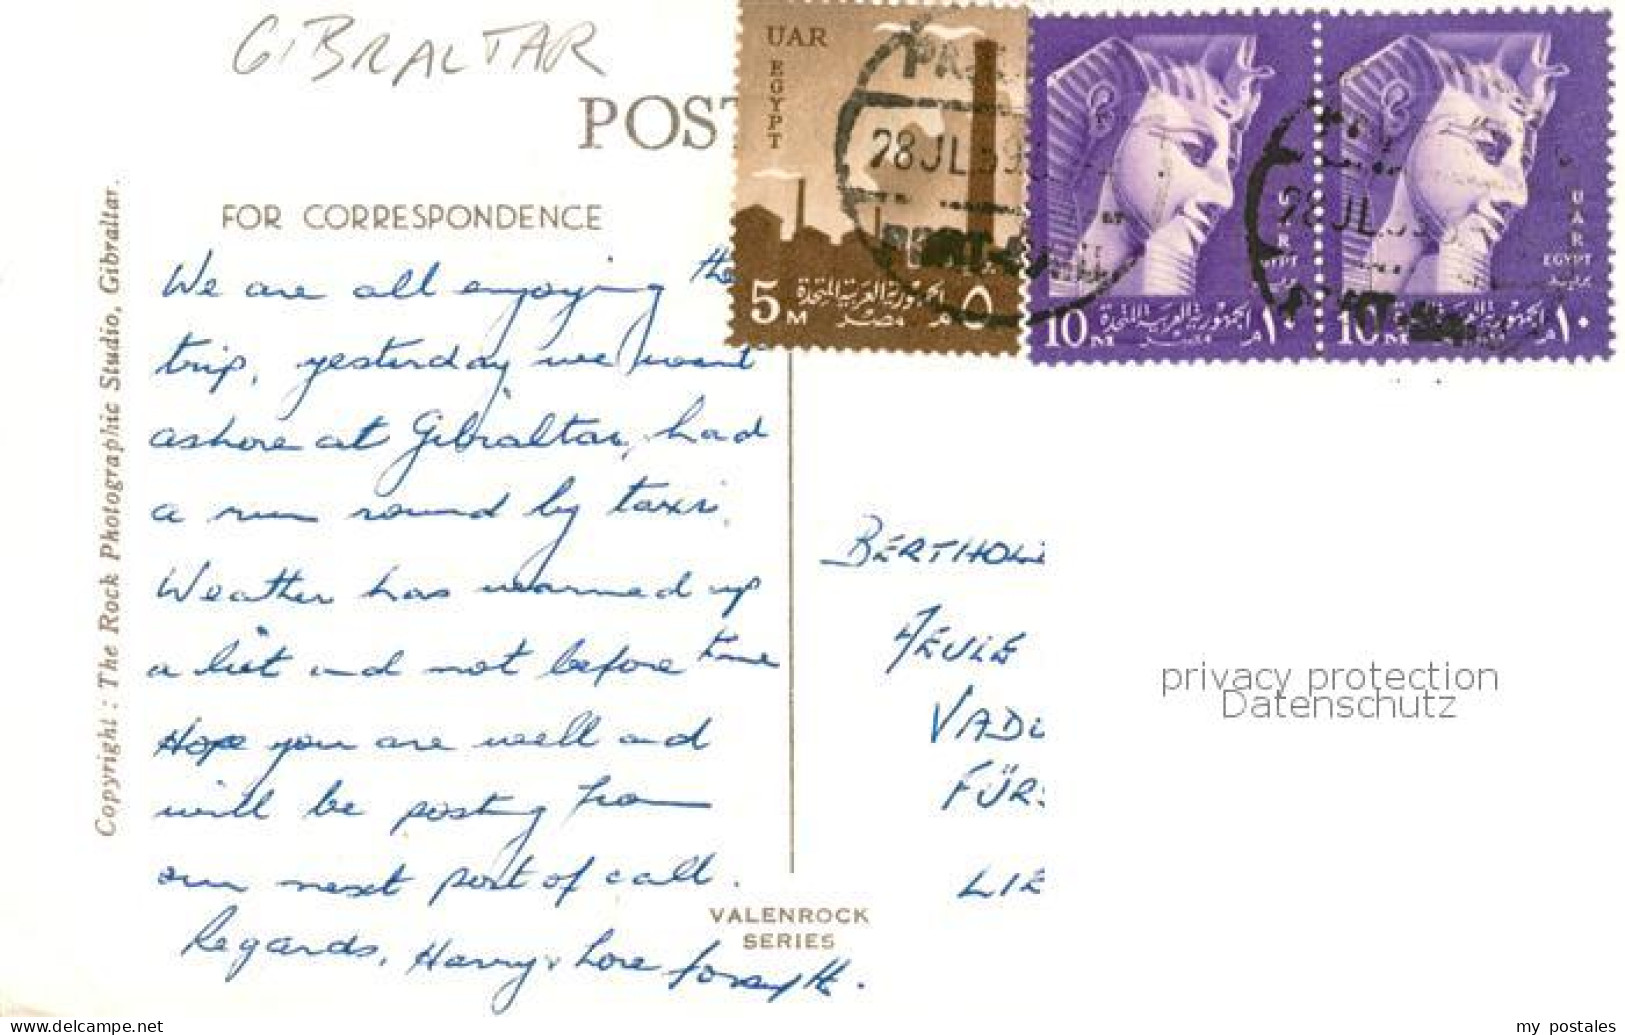 GIBRALTAR
POST
FOR CORRESPONDENCE
We are all enjoying the
trip, yesterday we went
ashore at Gibraltar, had
a run round by taxi.
Weather has warmed up
a bit and not before time
Hope you are well and
will be posting from
our next port of call.
Regards, Harry & Lore Forsyth.
Copyright: The Rock Photographic Studio, Gibraltar.
VALENROCK
SERIES
UAR
EGYPT
5 M
الجمهورية العربية المتحدة
مصر
٥ م
28 JL 59
PORT-SAID
UAR
EGYPT
10 M
الجمهورية العربية المتحدة
مصر
١٠ م
UAR
EGYPT
10 M
الجمهورية العربية المتحدة
مصر
١٠ م
28 JL 59
BERTHOL
VADU
FÜRS
LIE
privacy protection
Datenschutz
my_postales